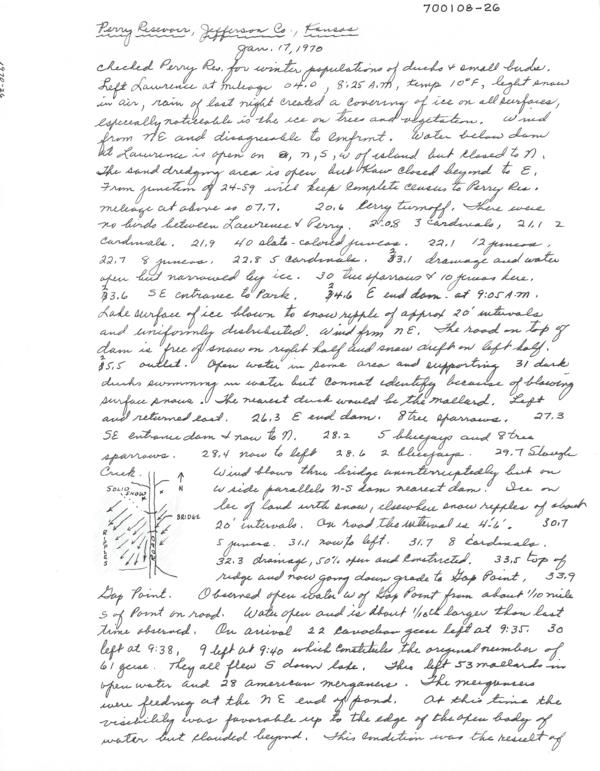 700108-26
Perry Reservoir, Jefferson Co., Kansas
Jan. 17, 1970
checked Perry Res. for winter populations of ducks & small birds.
Left Lawrence at mileage 04.0, 8:25 A.M., temp 10°F, light snow
in air, rain of last night created a covering of ice on all surfaces,
especially noticeable is the ice on trees and vegetation. Wind
from NE and disagreeable to confront. Water below dam
at Lawrence is open on N, S, W of island but closed to N.
The sand dredging area is open but Kaw closed beyond to E.
From junction of 24-59 will keep complete census to Perry Res.
mileage at above is 07.7. 20.6 Perry turnoff. There were
no birds between Lawrence & Perry. 3 cardinals, 21.1 2
cardinals. 21.9 40 slate-colored juncos. 22.1 12 juncos.
22.7 8 juncos. 22.8 5 cardinals. 23.1 drainage and water
open but narrowed by ice. 30 tree sparrows & 10 juncos here.
23.6 SE entrance to Park. 24.6 E end dam at 9:05 A.M.
Lake surface of ice blown to snow ripple of approx 20' intervals
and uniformly distributed. Wind from NE. The road on top of
dam is free of snow on right half and snow drift on left half.
25.5 outlet. Open water in some area and supporting 31 dark
ducks swimming in water but cannot identify because of blowing
surface snows. The nearest duck would be the mallard. Left
and returned east. 26.3 E end dam. 8 tree sparrows. 27.3
SE entrance dam & now to N. 28.2 5 bluejays and 8 tree
sparrows. 28.4 now to left 28.6 2 bluejays. 29.7 Slough
Creek. Wind blows thru bridge uninterruptedly but on
W side parallels N-S dam nearest dam. Ice on
lee of land with snow, elsewhere snow ripples of about
20' intervals. On road the interval is 4-6'. 30.7
5 juncos. 31.1 now to left. 31.7 8 cardinals.
32.3 drainage, 50% open and constricted. 33.5 top of
ridge and now going down grade to Gap Point. 33.9
SOLID
SNOW
N
BRIDGE
RIPPLES
ROAD
Gap Point. Observed open water W of Gap Point from about 1/10 mile
S of Point on road. Water open and is about 1/10th larger than last
time observed. On arrival 22 Canadian geese left at 9:35. 30
left at 9:38, 9 left at 9:40 which constitutes the original number of
61 geese. They all flew S down lake. This left 53 mallards in
open water and 28 American mergansers. The mergansers
were feeding at the NE end of pond. At this time the
visibility was favorable up to the edge of the open body of
water but clouded beyond. This condition was the result of